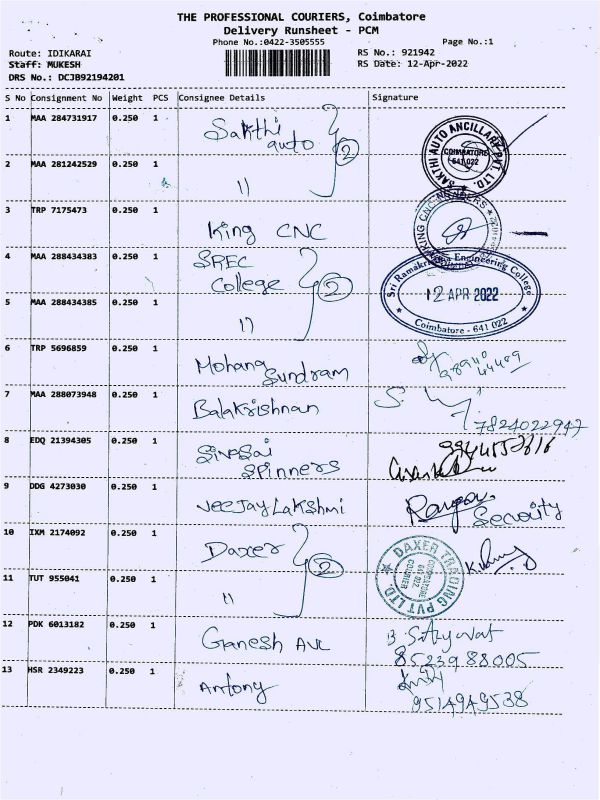 THE PROFESSIONAL COURIERS, Coimbatore
Delivery Runsheet - PCM
Phone No.:0422-3505555
Page No.:1
Route: IDIKARAI
Staff: MUKESH
DRS No.: DCJB92194201
RS No.: 921942
RS Date: 12-Apr-2022
S No Consignment No Weight PCS Consignee Details Signature
1 MAA 284731917 0.250 1 Sakthi auto 2
SAKTHI AUTO ANCILLARY PVT. LTD. COIMBATORE 641 022
2 MAA 281242529 0.250 1 11
3 TRP 7175473 0.250 1 King CNC
KING CNC
4 MAA 288434383 0.250 1 SREC College 2
Sri Ramakrishna Engineering College
12 APR 2022
Coimbatore - 641 022
5 MAA 288434385 0.250 1 11
6 TRP 5696859 0.250 1 Mohana Sundram
7 MAA 288073948 0.250 1 Balakrishnan
7824022947
8 EDQ 21394305 0.250 1 Sivasai Spinners
9 DDG 4273030 0.250 1 VeeJay Lakshmi
Security
10 IXM 2174092 0.250 1 Daxer 2
DAXER TRADING PVT LTD. COIMBATORE
11 TUT 955041 0.250 1 11
12 PDK 6013182 0.250 1 Ganesh
8523988005
13 HSR 2349223 0.250 1 Antony
9514949538